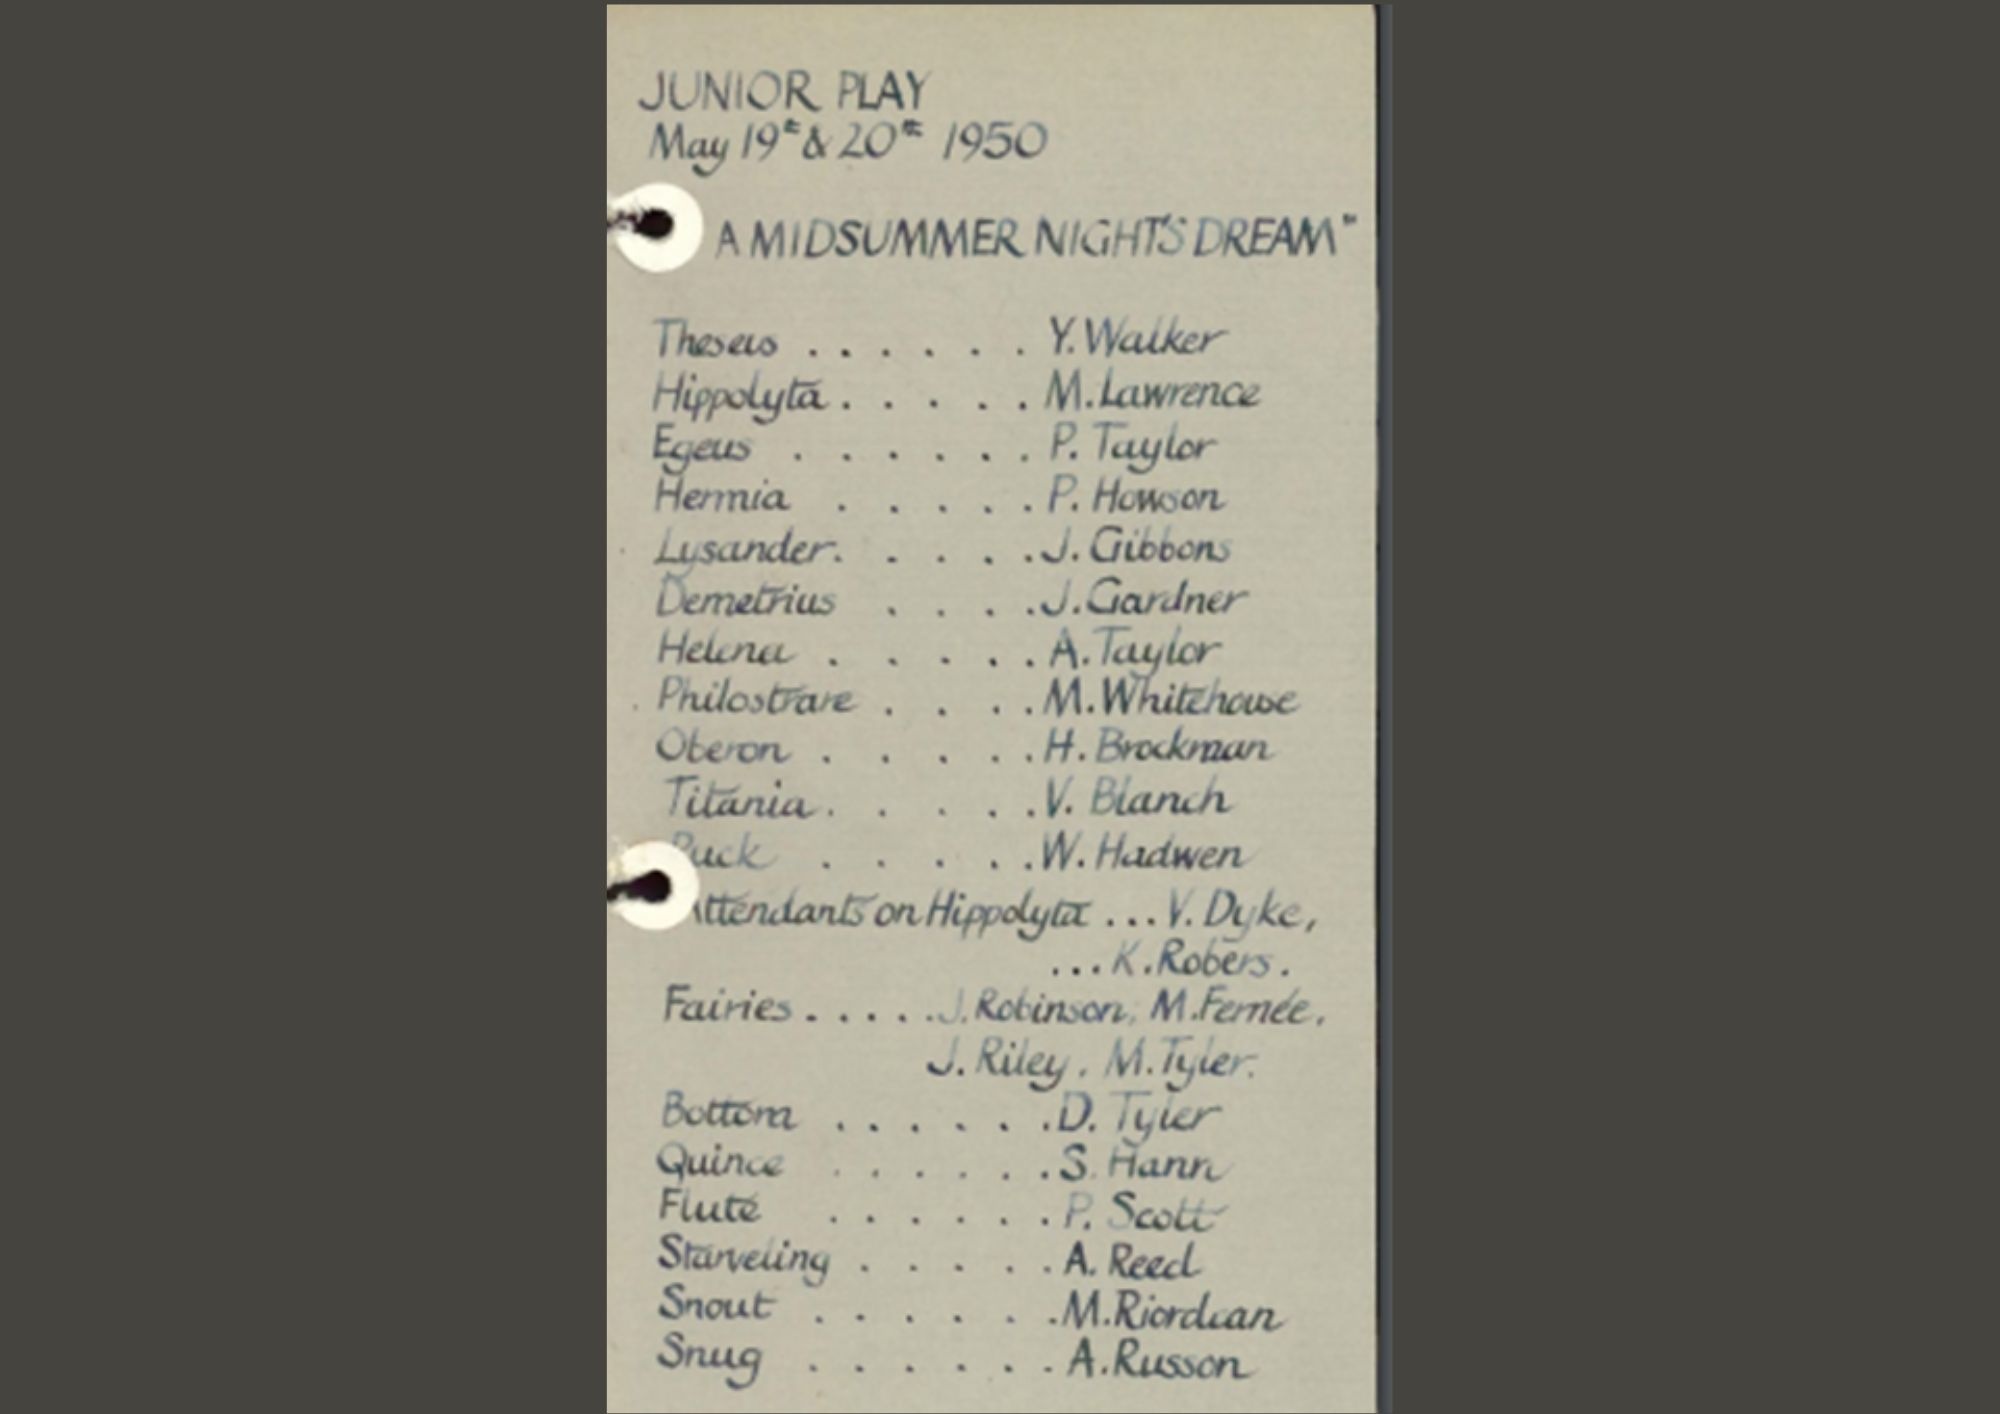 JUNIOR PLAY
May 19th & 20th 1950
A MIDSUMMER NIGHT'S DREAM"
Theseus . . . . . . Y. Walker
Hippolyta . . . . . M. Lawrence
Egeus . . . . . . P. Taylor
Hermia . . . . . P. Howson
Lysander . . . . J. Gibbons
Demetrius . . . . J. Gardner
Helena . . . . . A. Taylor
Philostrate . . . . M. Whitehouse
Oberon . . . . . H. Brockman
Titania . . . . . V. Blanch
Puck . . . . . W. Hadwen
Attendants on Hippolyta ... V. Dyke,
... K. Robers.
Fairies . . . . . J. Robinson, M. Fernée.
J. Riley. M. Tyler.
Bottom . . . . . . D. Tyler
Quince . . . . . . S. Hann
Flute . . . . . . P. Scott
Starveling . . . . . A. Reed
Snout . . . . . . M. Riordan
Snug . . . . . . A. Russon